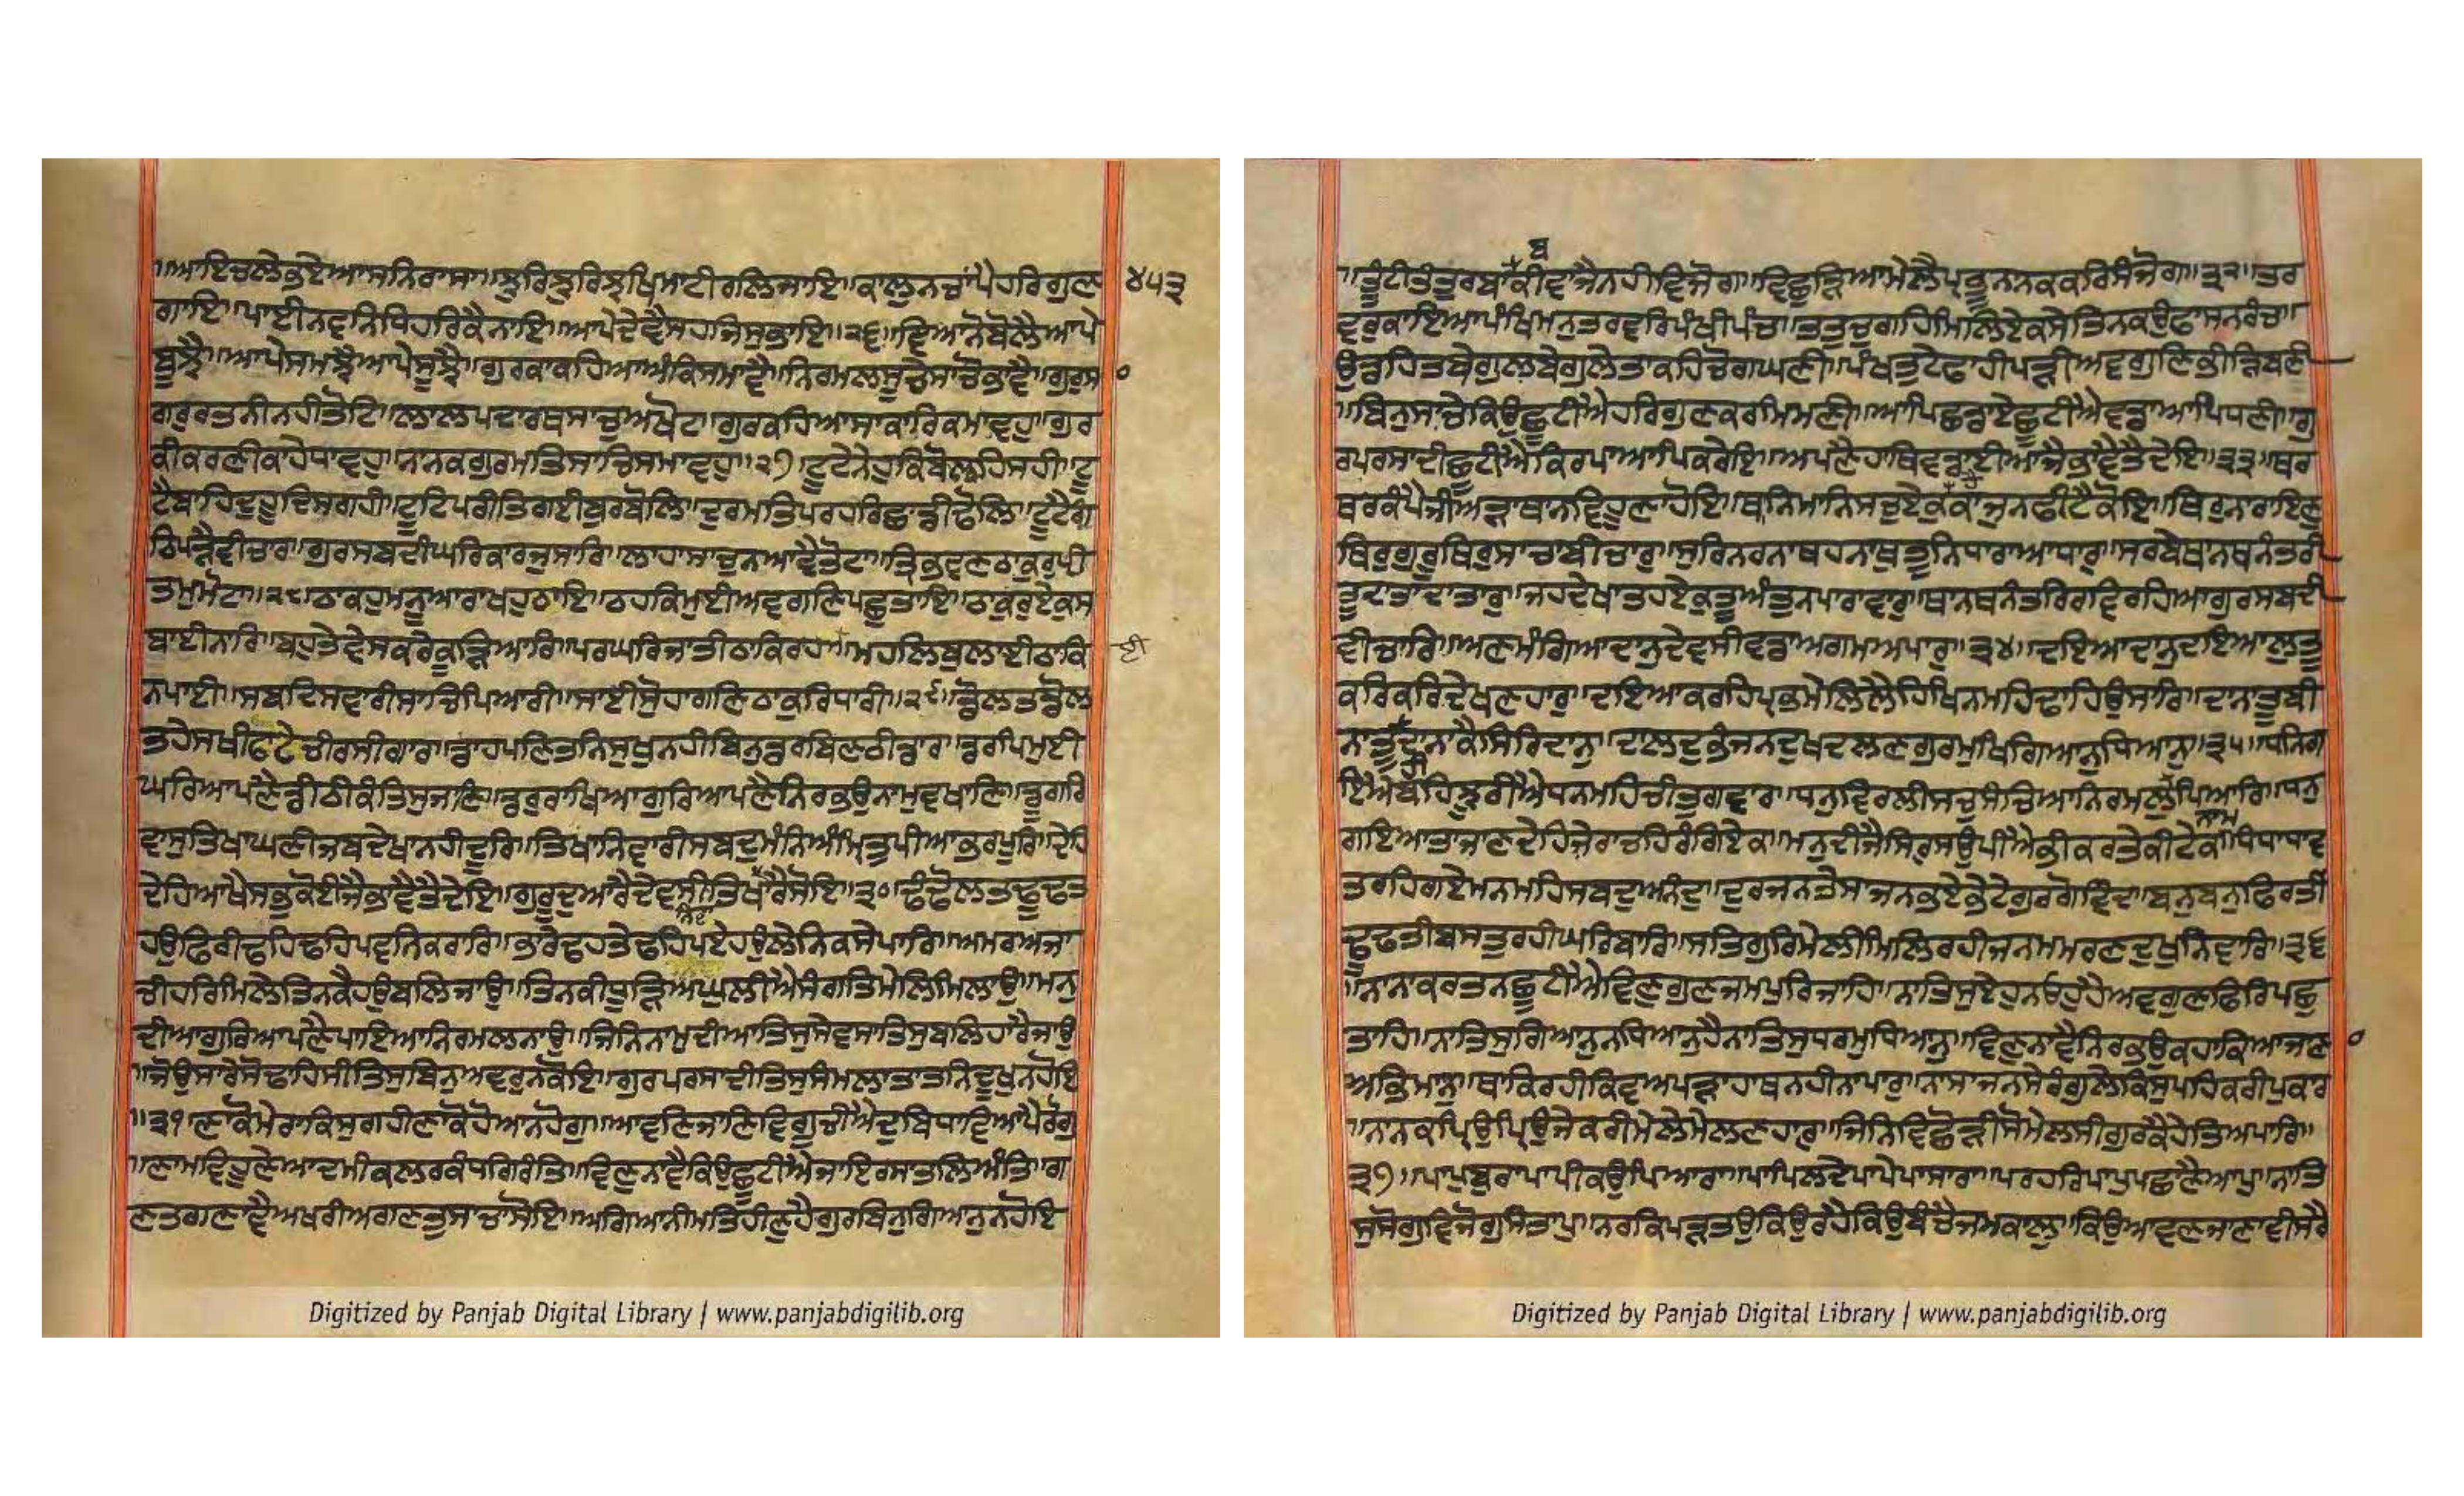 ॥ਆਇਚਲੇਭਏਆਸਨਿਰਾਸਾ॥ਝੁਰਿਝੁਰਿਝਖਿਮਾਟੀਰਲਿਜਾਇ॥ਕਾਲੁਨਚਾਂਪੈਹਰਿਗੁਣ
੪੫੩
ਗਾਇ॥ਪਾਈਨਵਨਿਧਿਹਰਿਕੈਨਾਇ॥ਆਪੇਦੇਵੈਸਹਜਿਸੁਭਾਇ॥੨੬॥ਞਿਆਨੋਬੋਲੈਆਪੇ
ਬੂਝੈ॥ਆਪੇਸਮਝੈਆਪੇਸੂਝੈ॥ਗੁਰਕਾਕਹਿਆਅੰਕਿਸਮਾਵੈ॥ਨਿਰਮਲਸੂਚੇਸਾਚੋਭਾਵੈ॥ਗੁਰੁਸਾ
ਗਰੁਰਤਨੀਨਹੀਤੋਟਿ॥ਲਾਲਪਦਾਰਥਸਾਚੁਅਖੋਟਾ॥ਗੁਰਕਹਿਆਸਾਕਾਰਿਕਮਾਵਹੁ॥ਗੁਰ
ਕੀਕਰਣੀਕਾਹੇਧਾਵਹੁ॥ਨਾਨਕਗੁਰਮਤਿਸਾਚਿਸਮਾਵਹੁ॥੨੭॥ਟੂਟੈਨੇਹੁਕਿਬੋਲਹਿਸਹੀ॥ਟੂ
ਟੈਬਾਹਦੁਹੂਦਿਸਗਹੀ॥ਟੂਟਿਪਰੀਤਿਗਈਬੁਰਬੋਲਿ॥ਦੁਰਮਤਿਪਰਹਰਿਛਾਡੀਢੋਲਿ॥ਟੂਟੈਗਾਂ
ਠਿਪੜੈਵੀਚਾਰਿ॥ਗੁਰਸਬਦੀਘਰਿਕਾਰਜੁਸਾਰਿ॥ਲਾਹਾਸਾਚੁਨਆਵੈਤੋਟਾ॥ਤ੍ਰਿਭੁਵਣਠਾਕੁਰੁਪ੍ਰੀ
ਤਮੁਮੋਟਾ॥੨੮॥ਠਾਕਹੁਮਨੂਆਰਾਖਹੁਠਾਇ॥ਠਹਕਿਮੁਈਅਵਗੁਣਿਪਛੁਤਾਇ॥ਠਾਕੁਰੁਏਕੁਸ
ਬਾਈਨਾਰਿ॥ਬਹੁਤੇਵੇਸਕਰੇਕੂੜਿਆਰਿ॥ਪਰਘਰਿਜਾਤੀਠਾਕਿਰਹਾ॥ਮਹਲਿਬੁਲਾਈਠਾਕਿ
ਈ
ਨਪਾਈ॥ਸਬਦਿਸਵਾਰੀਸਾਚਿਪਿਆਰੀ॥ਸਾਈਸੋੁਹਾਗਣਿਠਾਕੁਰਿਧਾਰੀ॥੨੯॥ਡੋਲਤਡੋਲ
ਤਹੇਸਖੀਫਾਟੇਚੀਰਸੀਗਾਰ॥ਡਾਹਪਣਿਤਨਿਸੁਖੁਨਹੀਬਿਨੁਡਰਬਿਣਠੀਡਾਰ॥ਡਰਪਿਮੁਈ
ਘਰਿਆਪਣੈਡੀਠੀਕੰਤਿਸੁਜਾਣਿ॥ਡਰੁਰਾਖਿਆਗੁਰਿਆਪਣੈਨਿਰਭਉਨਾਮੁਵਖਾਣਿ॥ਡੂਗਰਿ
ਵਾਸੁਤਿਖਾਘਣੀਜਬਦੇਖਾਨਹੀਦੂਰਿ॥ਤਿਖਾਨਿਵਾਰੀਸਬਦੁਮੰਨਿਅੰਮ੍ਰਿਤੁਪੀਆਭਰਪੂਰਿ॥ਦੇਹਿ
ਦੇਹਿਆਖੈਸਭੁਕੋਈਜੈਭਾਵੈਤੈਦੇਇ॥ਗੁਰੂਦੁਆਰੈਦੇਵਸੀਤਿਖਾਰੈਸੋਇ॥੩੦॥ਢੰਢੋਲਤਢੂਢਤ
ਨਿਵਾ
ਹਉਫਿਰੀਢਹਿਢਹਿਪਵਨਿਕਰਾਰਿ॥ਭਾਰੇਢਹਤੇਢਹਿਪਏਹਉਲੇਨਿਕਸੇਪਾਰਿ॥ਅਮਰਅਜਾ
ਚੀਹਰਿਮਿਲੇਤਿਨਕੈਹਉਬਲਿਜਾਉ॥ਤਿਨਕੀਧੂੜਿਅਘੁਲੀਐਸੰਗਤਿਮੇਲਿਮਿਲਾਉ॥ਮਨੁ
ਦੀਆਗੁਰਿਆਪਣੈਪਾਇਆਨਿਰਮਲਨਾਉ॥ਜਿਨਿਨਾਮੁਦੀਆਤਿਸੁਸੇਵਸਾਤਿਸੁਬਲਿਹਾਰੈਜਾਉ
॥ਜੋਉਸਾਰੇਸੋਢਾਹਸੀਤਿਸੁਬਿਨੁਅਵਰੁਨਕੋਇ॥ਗੁਰਪਰਸਾਦੀਤਿਸੁਸੰਮਲਾਤਾਤਨਿਦੂਖੁਨਹੋਇ
॥੩੧॥ਣਾਕੋਮੇਰਾਕਿਸੁਗਹੀਣਾਕੋਹੋਆਨਹੋਗੁ॥ਆਵਣਿਜਾਣਿਵਿਗੁਚੀਐਦੁਬਿਧਾਵਿਆਪੈਰੋਗੁ
॥ਣਾਮਵਿਹੂਣੇਆਦਮੀਕਲਰਕੰਧਗਿਰੰਤਿ॥ਵਿਣੁਨਾਵੈਕਿਉਛੂਟੀਐਜਾਇਰਸਾਤਲਿਅੰਤਿ॥ਗ
ਣਤਗਣਾਵੈਅਖਰੀਅਗਣਤੁਸਾਚਾਸੋਇ॥ਅਗਿਆਨੀਮਤਿਹੀਣੁਹੈਗੁਰਬਿਨੁਗਿਆਨੁਨਹੋਇ
ਬ
॥ਤੂਟੀਤੰਤੁਰਬਾਕੀਵਾਜੈਨਹੀਵਿਜੋਗਿ॥ਵਿਛੁੜਿਆਮੇਲੈਪ੍ਰਭੂਨਾਨਕਕਰਿਸੰਜੋਗ॥੩੨॥ਤਰ
ਵਰੁਕਾਇਆਪੰਖਿਮਨੁਤਰਵਰਿਪੰਖੀਪੰਚਾ॥ਤਤੁਚੁਗਹਿਮਿਲਿਏਕਸੇਤਿਨਕਉਫਾਸਨਰੰਚਾ॥
ਉਡਹਿਤਬੇਗੁਲਬੇਗੁਲੇਤਾਕਹਿਚੋਗਘਣੀ॥ਪੰਖਤੁਟੇਫਾਹੀਪੜੀਅਵਗੁਣਿਭੀੜਿਬਣੀ
॥ਬਿਨੁਸਾਚੇਕਿਉਛੂਟੀਐਹਰਿਗੁਣਕਰਮਿਮਣੀ॥ਆਪਿਛਡਾਏਛੂਟੀਐਵਡਾਆਪਿਧਣੀ॥ਗੁ
ਰਪਰਸਾਦੀਛੂਟੀਐਕਿਰਪਾਆਪਿਕਰੇਇ॥ਅਪਣੈਹਾਥਿਵਡਾਈਆਜੈਭਾਵੈਤੈਦੇਇ॥੩੩॥ਥਰ
ਥਰਕੰਪੈਜੀਅੜਾਥਾਨਵਿਹੂਣਾਹੋਇ॥ਥਾਨਿਮਾਨਿਸਚੁਏਕੁਕਾਜੁਨਫੀਟੈਕੋਇ॥ਥਿਰੁਨਾਰਾਇਣੁ
ਥਿਰੁਗੁਰੁਥਿਰੁਸਾਚਾਬੀਚਾਰੁ॥ਸੁਰਿਨਰਨਾਥਹਨਾਥੁਤੂਨਿਧਾਰਾਆਧਾਰੁ॥ਸਰਬੇਥਾਨਥਨੰਤਰੀ
ਤੂਦਾਤਾਦਾਤਾਰੁ॥ਜਹਦੇਖਾਤਹਏਕੁਤੂਅੰਤੁਨਪਾਰਾਵਾਰੁ॥ਥਾਨਥਨੰਤਰਿਰਵਿਰਹਿਆਗੁਰਸਬਦੀ
ਵੀਚਾਰਿ॥ਅਣਮੰਗਿਆਦਾਨੁਦੇਵਸੀਵਡਾਅਗਮਅਪਾਰੁ॥੩੪॥ਦਇਆਦਾਨੁਦਇਆਲੁਤੂ
ਕਰਿਕਰਿਦੇਖਣਹਾਰੁ॥ਦਇਆਕਰਹਿਪ੍ਰਭਮੇਲਿਲੈਹਿਖਿਨਮਹਿਢਾਹਿਉਸਾਰਿ॥ਦਾਨਾਤੂਬੀ
ਨਾਤੂਦਾਨਾਕੈਸਿਰਿਦਾਨੁ॥ਦਾਲਦੁਭੰਜਨਦੁਖਦਲਣਗੁਰਮੁਖਿਗਿਆਨੁਧਿਆਨੁ॥੩੫॥ਧਨਿਗ
ਇਐਬਹਿਝੂਰੀਐਧਨਮਹਿਚੀਤੁਗਵਾਰ॥ਧਨੁਵਿਰਲੀਸਚੁਸੰਚਿਆਨਿਰਮਲੁਪਿਆਰਿ॥ਧਨੁ
ਨਾਮ
ਗਇਆਤਾਜਾਣਦੇਹਿਜੇਰਾਚਹਿਰੰਗਿਏਕ॥ਮਨੁਦੀਜੈਸਿਰੁਸਉਪੀਐਭੀਕਰਤੇਕੀਟੇਕ॥ਧੰਧਾਧਾਵ
ਤਰਹਿਗਏਮਨਮਹਿਸਬਦੁਅਨੰਦੁ॥ਦੁਰਜਨਤੇਸਾਜਨਭਏਭੇਟੇਗੁਰਗੋਵਿੰਦਾ॥ਬਨੁਬਨੁਫਿਰਤੀ
ਢੂਢਤੀਬਸਤੁਰਹੀਘਰਿਬਾਰਿ॥ਸਤਿਗੁਰਿਮੇਲੀਮਿਲਿਰਹੀਜਨਮਮਰਣਦੁਖੁਨਿਵਾਰਿ॥੩੬
॥ਨਾਨਾਕਰਤਨਛੂਟੀਐਵਿਣੁਗੁਣਜਮਪੁਰਿਜਾਹਿ॥ਨਾਤਿਸੁਏਹੁਨਓਹੁਹੈਅਵਗੁਣਫਿਰਿਪਛੁ
ਤਾਹਿ॥ਨਾਤਿਸੁਗਿਆਨੁਨਧਿਆਨੁਹੈਨਾਤਿਸੁਧਰਮੁਧਿਆਨੁ॥ਵਿਣੁਨਾਵੈਨਿਰਭਉਕਹਾਕਿਆਜਾਣਾ
ਅਭਿਮਾਨੁ॥ਥਾਕਿਰਹੀਕਿਵਅਪੜਾਹਾਥਨਹੀਨਾਪਾਰੁ॥ਨਾਸਾਜਨਸੇਰੰਗੁਲੇਕਿਸੁਪਹਿਕਰੀਪੁਕਾਰ
॥ਨਾਨਕਪ੍ਰਿਉਪ੍ਰਿਉਜੇਕਰੀਮੇਲੇਮੇਲਣਹਾਰੁ॥ਜਿਨਿਵਿਛੋੜੀਸੋਮੇਲਸੀਗੁਰਕੈਹੇਤਿਅਪਾਰਿ॥
੩੭॥ਪਾਪੁਬੁਰਾਪਾਪੀਕਉਪਿਆਰਾ॥ਪਾਪਿਲਦੇਪਾਪੇਪਾਸਾਰਾ॥ਪਰਹਰਿਪਾਪੁਪਛਾਣੈਆਪੁ॥ਨਾਤਿ
ਸੁਸੋਗੁਵਿਜੋਗੁਸੰਤਾਪੁ॥ਨਰਕਿਪੜੰਤਉਕਿਉਰਹੈਕਿਉਬੰਚੈਜਮਕਾਲੁ॥ਕਿਉਆਵਣਜਾਣਾਵੀਸਰੈ
Digitized by Panjab Digital Library | www.panjabdigilib.org
Digitized by Panjab Digital Library | www.panjabdigilib.org